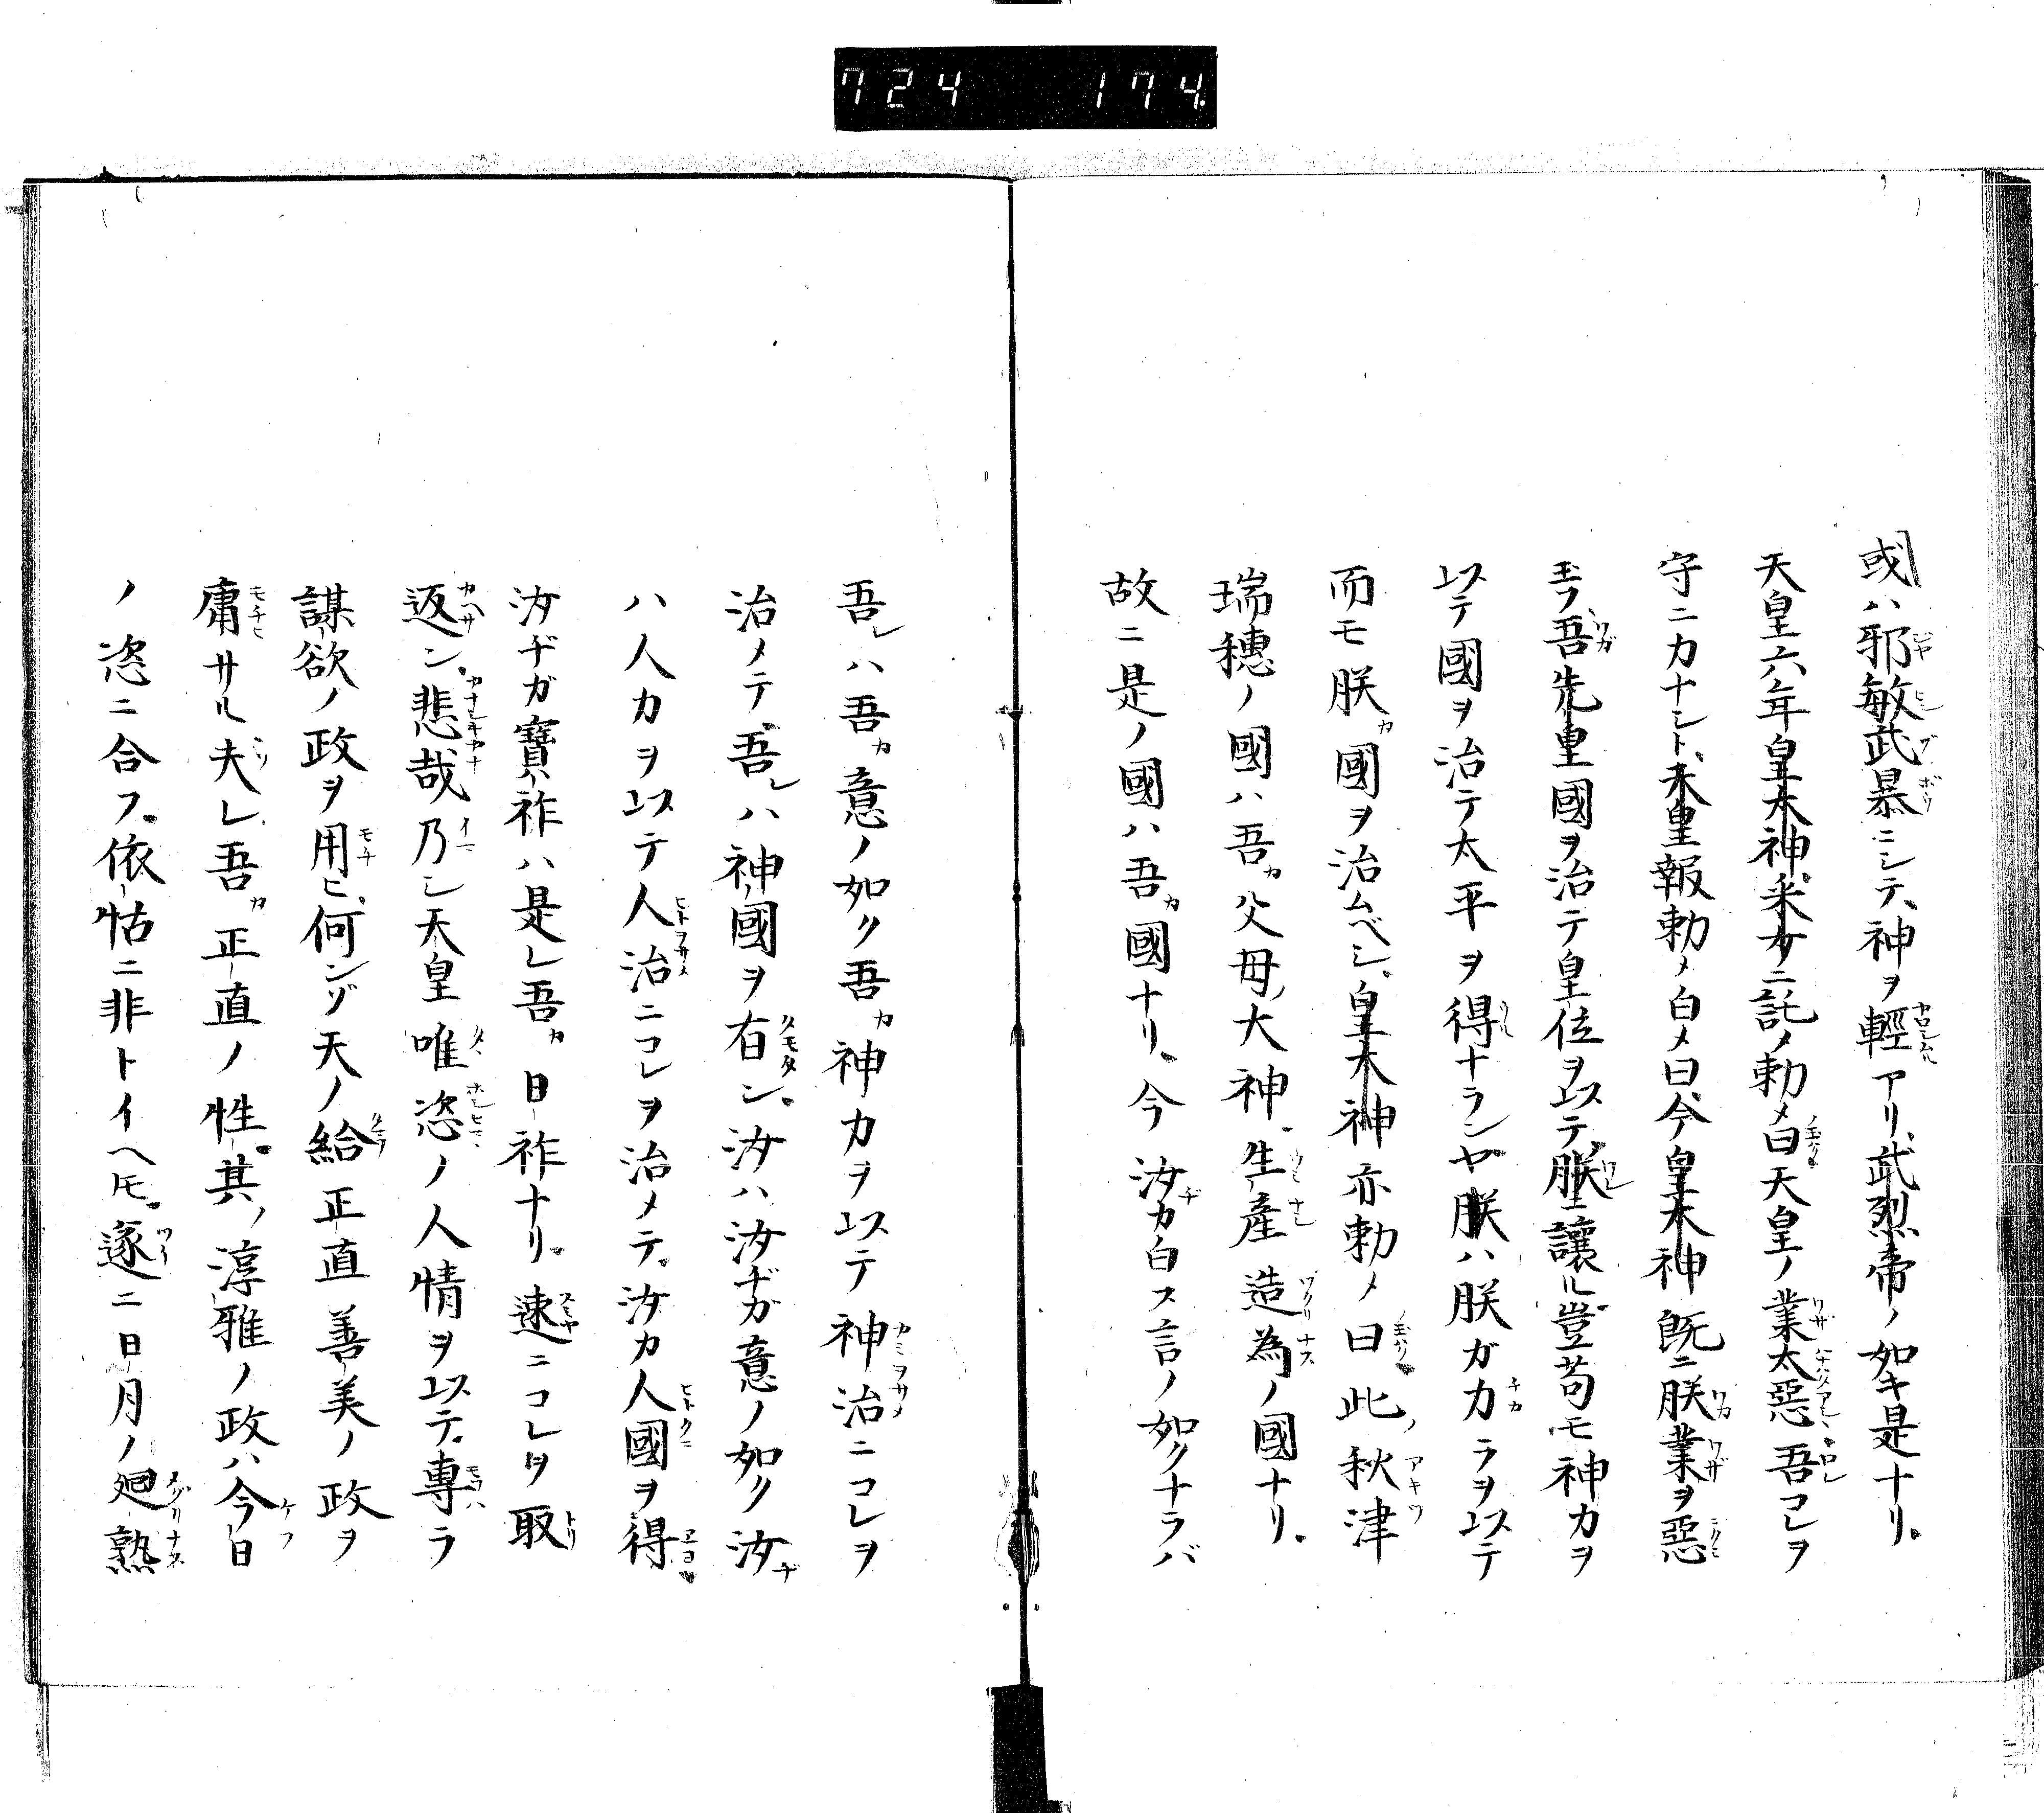 724 174
或ハ邪敏武暴ニシテ、神ヲ輕アリ、武烈帝ノ如キ是ナリ。
天皇六年皇太神、采女ニ託ノ勅メ曰天皇ノ業太惡吾コレヲ
守ニカナシト、未皇報勅メ白メ曰、今皇太神既ニ朕業ヲ惡
玉フ、吾先皇國ヲ治テ皇位ヲ以テ、朕ニ讓ル豈苟モ神カヲ
以テ國ヲ治テ太平ヲ得ナランヤ朕ハ朕ガカラヲ以テ
而モ朕カ國ヲ治ムベシ、皇太神亦勅メ曰此ノ秋津
瑞穗ノ國ハ吾カ父母ノ大神、生産造為ノ國ナリ。
故ニ是ノ國ハ吾カ國ナリ。今汝ヂカ白ス言ノ如クナラバ
吾レハ吾カ意ノ如ク吾カ神カヲ以テ神治ニコレヲ
治ノテ、吾レハ神國ヲ有ン。汝ハ汝ヂガ意ノ如ク汝ヂ
ハ人カヲ以テ人治ニコレヲ治メテ。汝カ人國ヲ得
汝ヂガ寳祚ハ是レ吾カ日祚ナリ。速ニコレヲ取
返ン。悲哉乃シ天皇唯恣ノ人情ヲ以テ。專ラ
謀欲ノ政ヲ用ヒ、何ンゾ天ノ給正直善美ノ政ヲ
庸サル夫レ吾カ正直ノ性。其ノ淳雅ノ政ハ今日
ノ恣ニ合フ。依怙ニ非トイヘ𪜈。遂ニ日月ノ廻熟